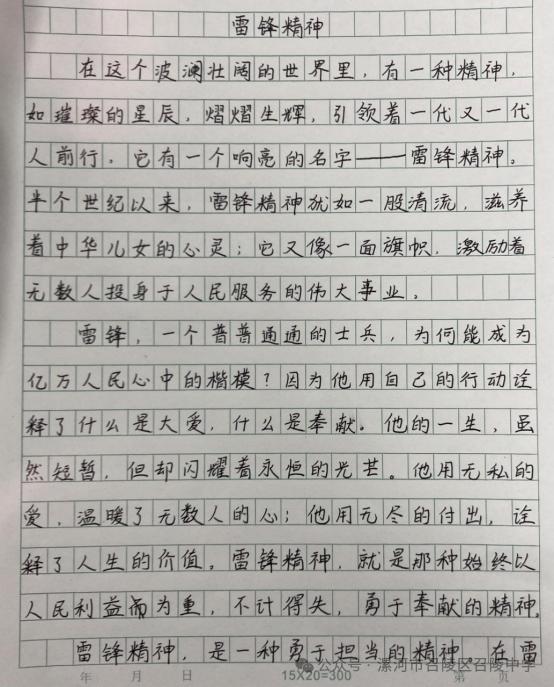 雷锋精神
在这个波澜壮阔的世界里，有一种精神，
如璀璨的星辰，熠熠生辉，引领着一代又一代
人前行，它有一个响亮的名字——雷锋精神。
半个世纪以来，雷锋精神就如一股清流，滋养
着中华儿女的心灵；它又像一面旗帜，激励着
无数人投身于人民服务的伟大事业。
雷锋，一个普普通通的士兵，为何能成为
亿万人民心中的楷模？因为他用自己的行动诠
释了什么是大爱，什么是奉献。他的一生，虽
然短暂，但却闪耀着永恒的光芒。他用无私的
爱，温暖了无数人的心；他用无尽的付出，诠
释了人生的价值。雷锋精神，就是那种始终以
人民利益而为重，不计得失，勇于奉献的精神。
雷锋精神，是一种勇于担当的精神。在雷
公众号·漯河市召陵区召陵中学
年 月 日 15X20=300 第 页